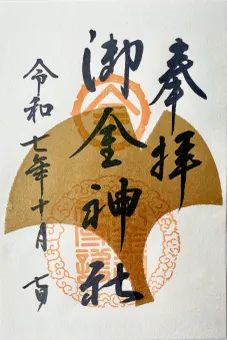 奉拝
御金神社
令和七年十月